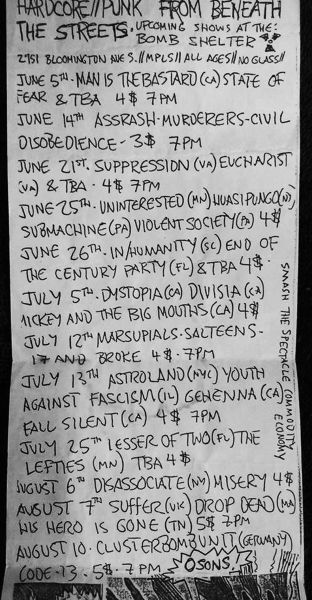 HARDCORE//PUNK FROM BENEATH
THE STREETS. UPCOMING SHOWS AT THE:
BOMB SHELTER
2151 BLOOMINGTON AVE S.//MPLS// ALL AGES// NO GLASS//
JUNE 5TH - MAN IS THE BASTARD (CA) STATE OF
FEAR & TBA 4$ 7PM
JUNE 14TH ASSRASH - MURDERERS - CIVIL
DISOBEDIENCE - 3$ 7PM
JUNE 21ST. SUPPRESSION (VA) EUCHARIST
(VA) & TBA - 4$ 7PM
JUNE 25TH. UNINTERESTED (MN) HUASIPUNGO (NJ),
SUBMACHINE (PA) VIOLENT SOCIETY (PA) 4$
JUNE 26TH. IN/HUMANITY (SC) END OF
THE CENTURY PARTY (FL) & TBA 4$.
JULY 5TH. DYSTOPIA (CA) DIVISIA (CA)
MICKEY AND THE BIG MOUTHS (CA) 4$
JULY 12TH MARSUPIALS - SALTEENS -
17 AND BROKE 4$ - 7PM
JULY 13TH ASTROLAND (NYC) YOUTH
AGAINST FASCISM (IL) GEHENNA (CA)
FALL SILENT (CA) 4$ 7PM
JULY 25TH LESSER OF TWO (FL) THE
LEFTIES (MN) TBA 4$
AUGUST 6TH DISASSOCIATE (NY) MISERY 4$
AUGUST 7TH SUFFER (UK) DROP DEAD (MA)
HIS HERO IS GONE (TN) 5$ 7PM
AUGUST 10. CLUSTERBOMBUNIT (GERMANY)
CODE-13. 5$. 7PM
SMASH THE SPECTACLE COMMODITY
ECONOMY